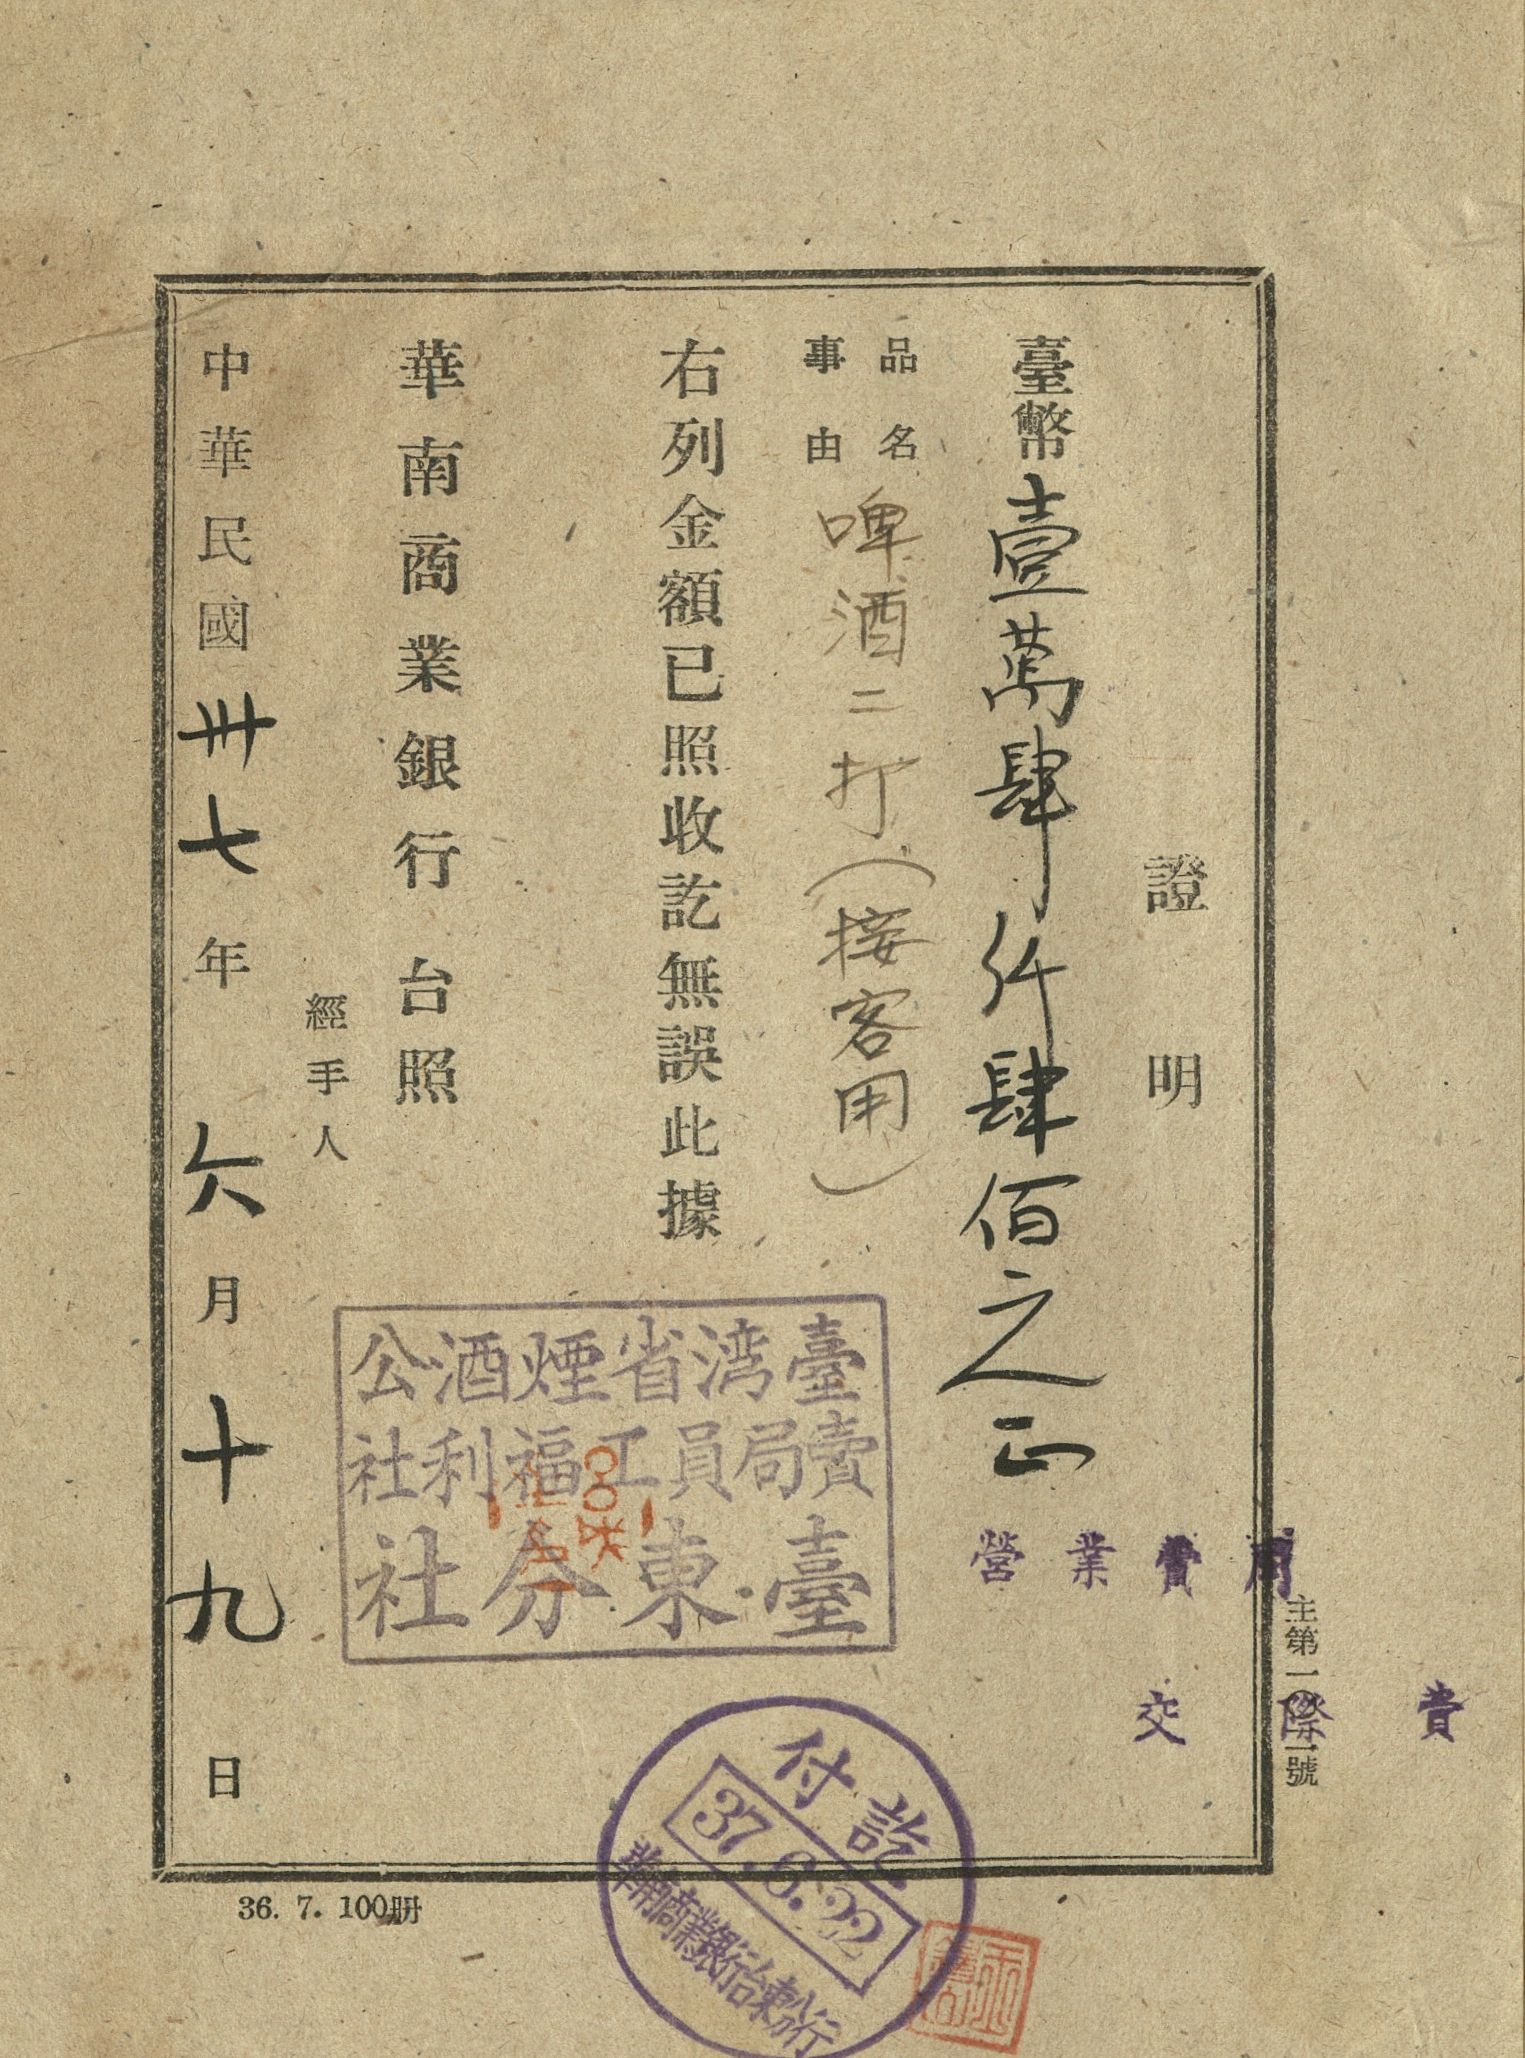 證明
臺幣壹萬肆仟肆佰之正
品名
事由
啤酒二打(接客用)
右列金額已照收訖無誤此據
華南商業銀行 台照
經手人
中華民國卅七年六月十九日
臺湾省煙酒公
賣局員工福利社
臺東分社
營業費用
交際費
主第一〇二號
付訖
37.6.22
華南商業銀行台東分行
36. 7. 100冊